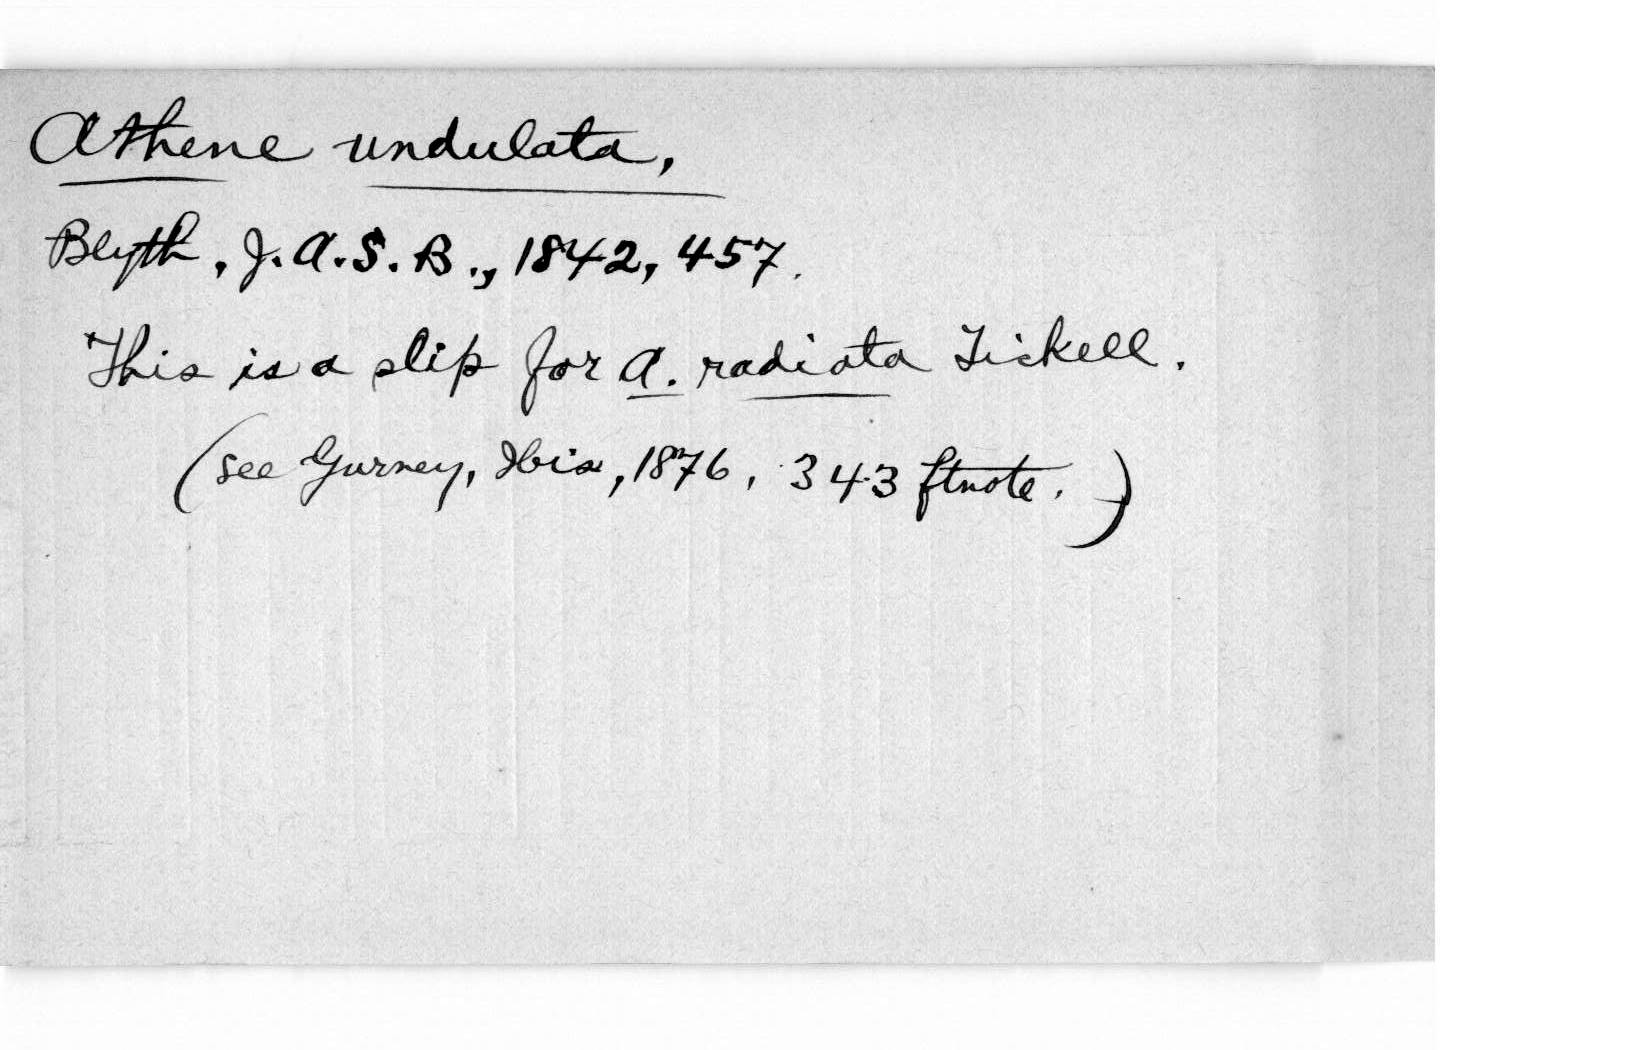 Athene undulata,
Blyth, J.A.S.B., 1842, 457.
This is a slip for A. radiata Tickell.
(see Gurney, Ibis, 1876, 343 ftnote.)